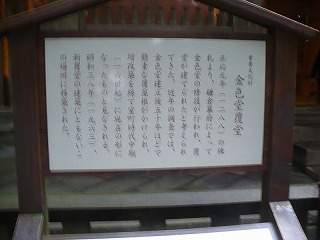 重要文化財
金色堂覆堂
正応元年(一二八八)の棟
札により、鎌倉幕府によって
金色堂の修理が行われ、覆
堂が建てられたと考えられ
てきた。近年の調査では、
金色堂建立後五十年ほどで
簡素な覆屋根がかけられ、
増改築を経て室町時代中頃
(一六世紀)に現在の形に
なったものと見なされる。
昭和三八年(一九六三)、
新覆堂の建築にともないこ
の場所に移築された。